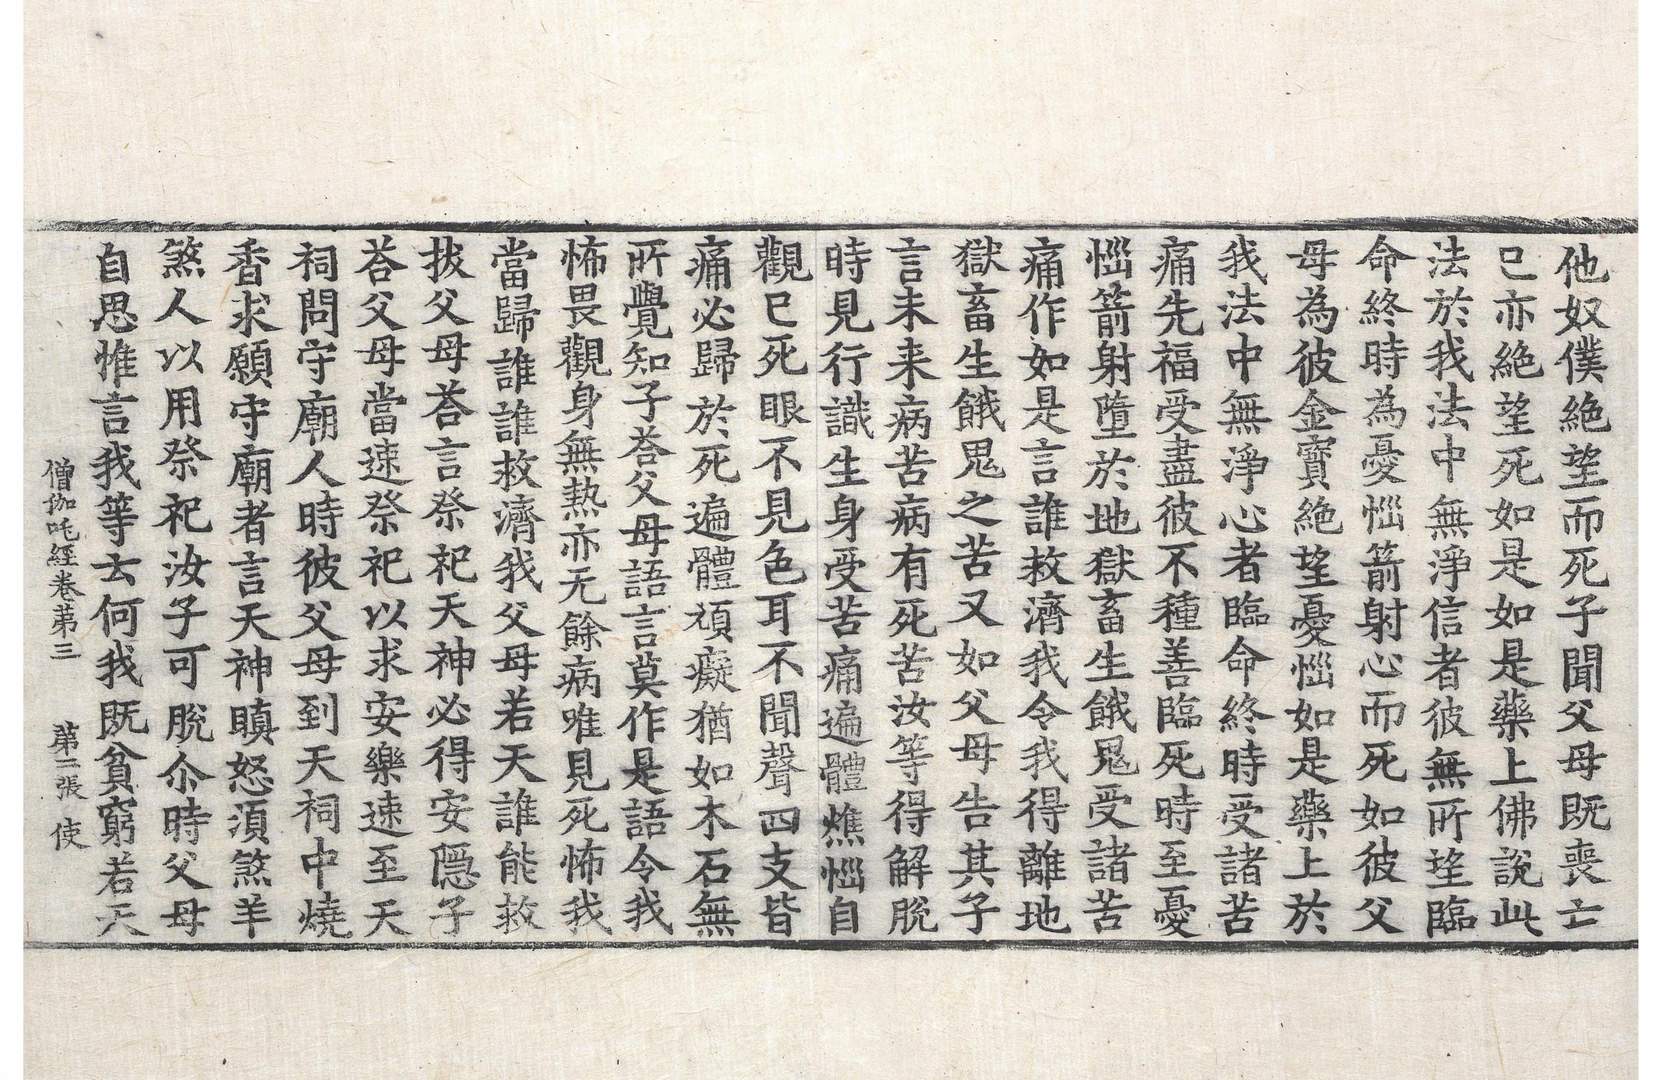 他奴僕絶望而死子聞父母既喪亡
已亦絶望死如是如是藥上佛說此
法於我法中無淨信者彼無所望臨
命終時為憂惱箭射心而死如彼父
母為彼金寶絶望憂惱如是藥上於
我法中無淨心者臨命終時受諸苦
痛先福受盡彼不種善臨死時至憂
惱箭射墮於地獄畜生餓鬼受諸苦
痛作如是言誰救濟我令我得離地
獄畜生餓鬼之苦又如父母告其子
言未来病苦病有死苦汝等得解脫
時見行識生身受苦痛遍體燋惱自
觀已死眼不見色耳不聞聲四支皆
痛必歸於死遍體頑癡猶如木石無
所覺知子荅父母語言莫作是語令我
怖畏觀身無熱亦无餘病唯見死怖我
當歸誰誰救濟我父母若天誰能救
拔父母荅言祭祀天神必得安隱子
荅父母當速祭祀以求安樂速至天
祠問守廟人時彼父母到天祠中燒
香求願守廟者言天神瞋怒須煞羊
煞人以用祭祀汝子可脫尒時父母
自思惟言我等云何我既貧窮若天
僧伽吒經卷第三 第二張 使